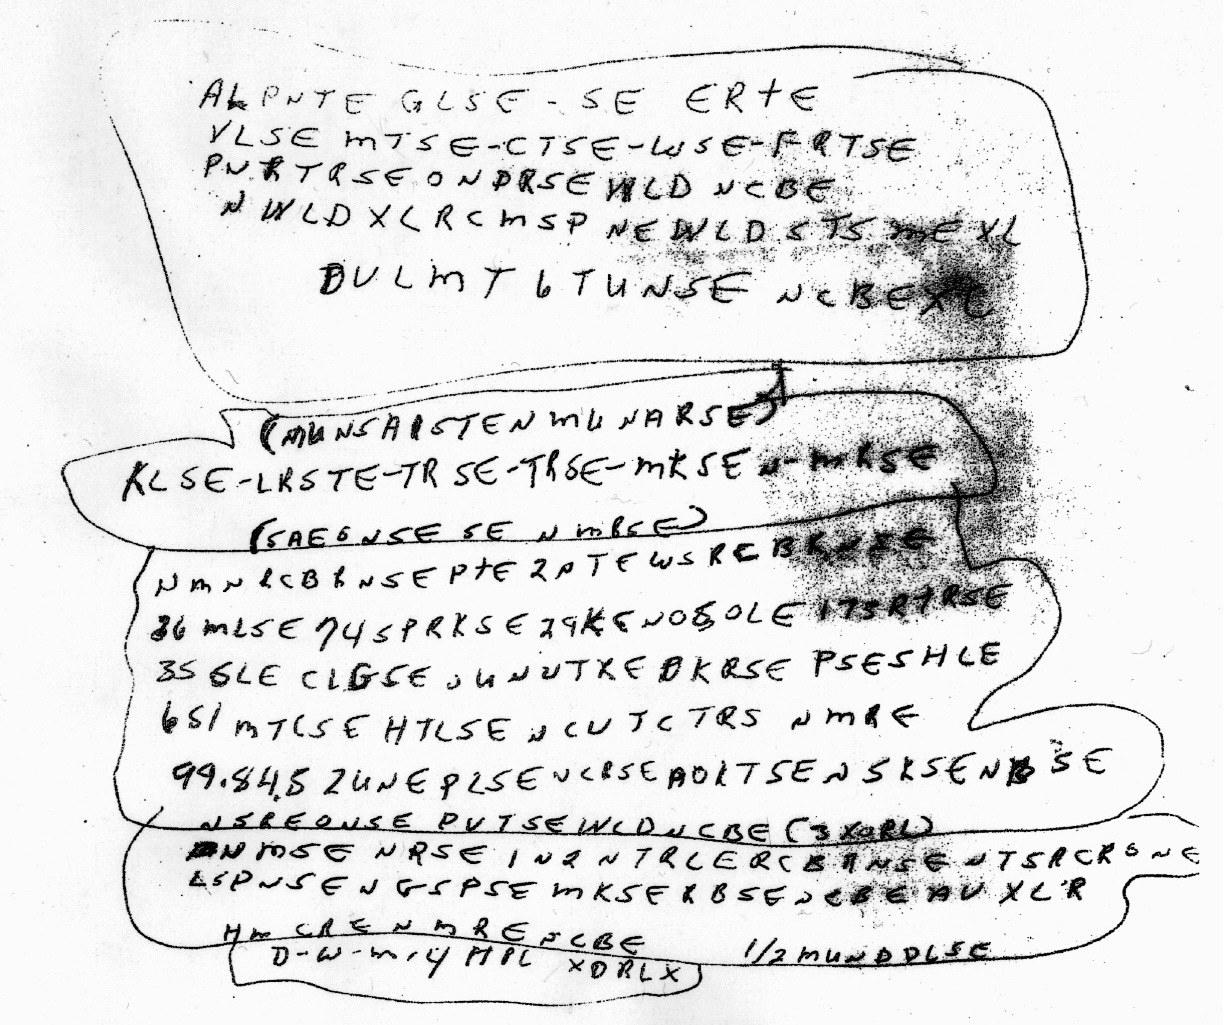 ALPNTE GLSE - SE ERTE
VLSE MTSE-CTSE-WSE-FRTSE
PNRTRSEONDRSEWLD NCBE
NWLDXLRCMSP NEWLD STS MEXL
DULMT 6 TUNSE NCBEXC
(MUNSAISTEN MUNARSE)
KLSE-LRSTE-TRSE-TRSE-MKSEN-MRSE
(SAE6NSE SE N MBSE)
NMNRCBRNSE PTE2PTEWSRCBRNSE
36 MLSE 74SPRKSE 29KENOSOLE 173RTRSE
35 GLE CLGSE UUNUTXE DKRSE PSESHLE
651 MTCSE HTLSE NCUTCTRS NMRE
99.84.5 2UNEPLSE NCRSE AOKTSE NSKSE NBSE
NSREONSE PUTSE WLD NCBE (3 XORL)
NMSE NRSE IN2 NTRLERCBRNSE NTSRCRONE
LSPNSE NGSPSE MKSERBSE NCBE AU XL'R
HM CRE NMRE NCBE 1/2 MUNDDLSE
D-W-M-4 HPL XDRLX